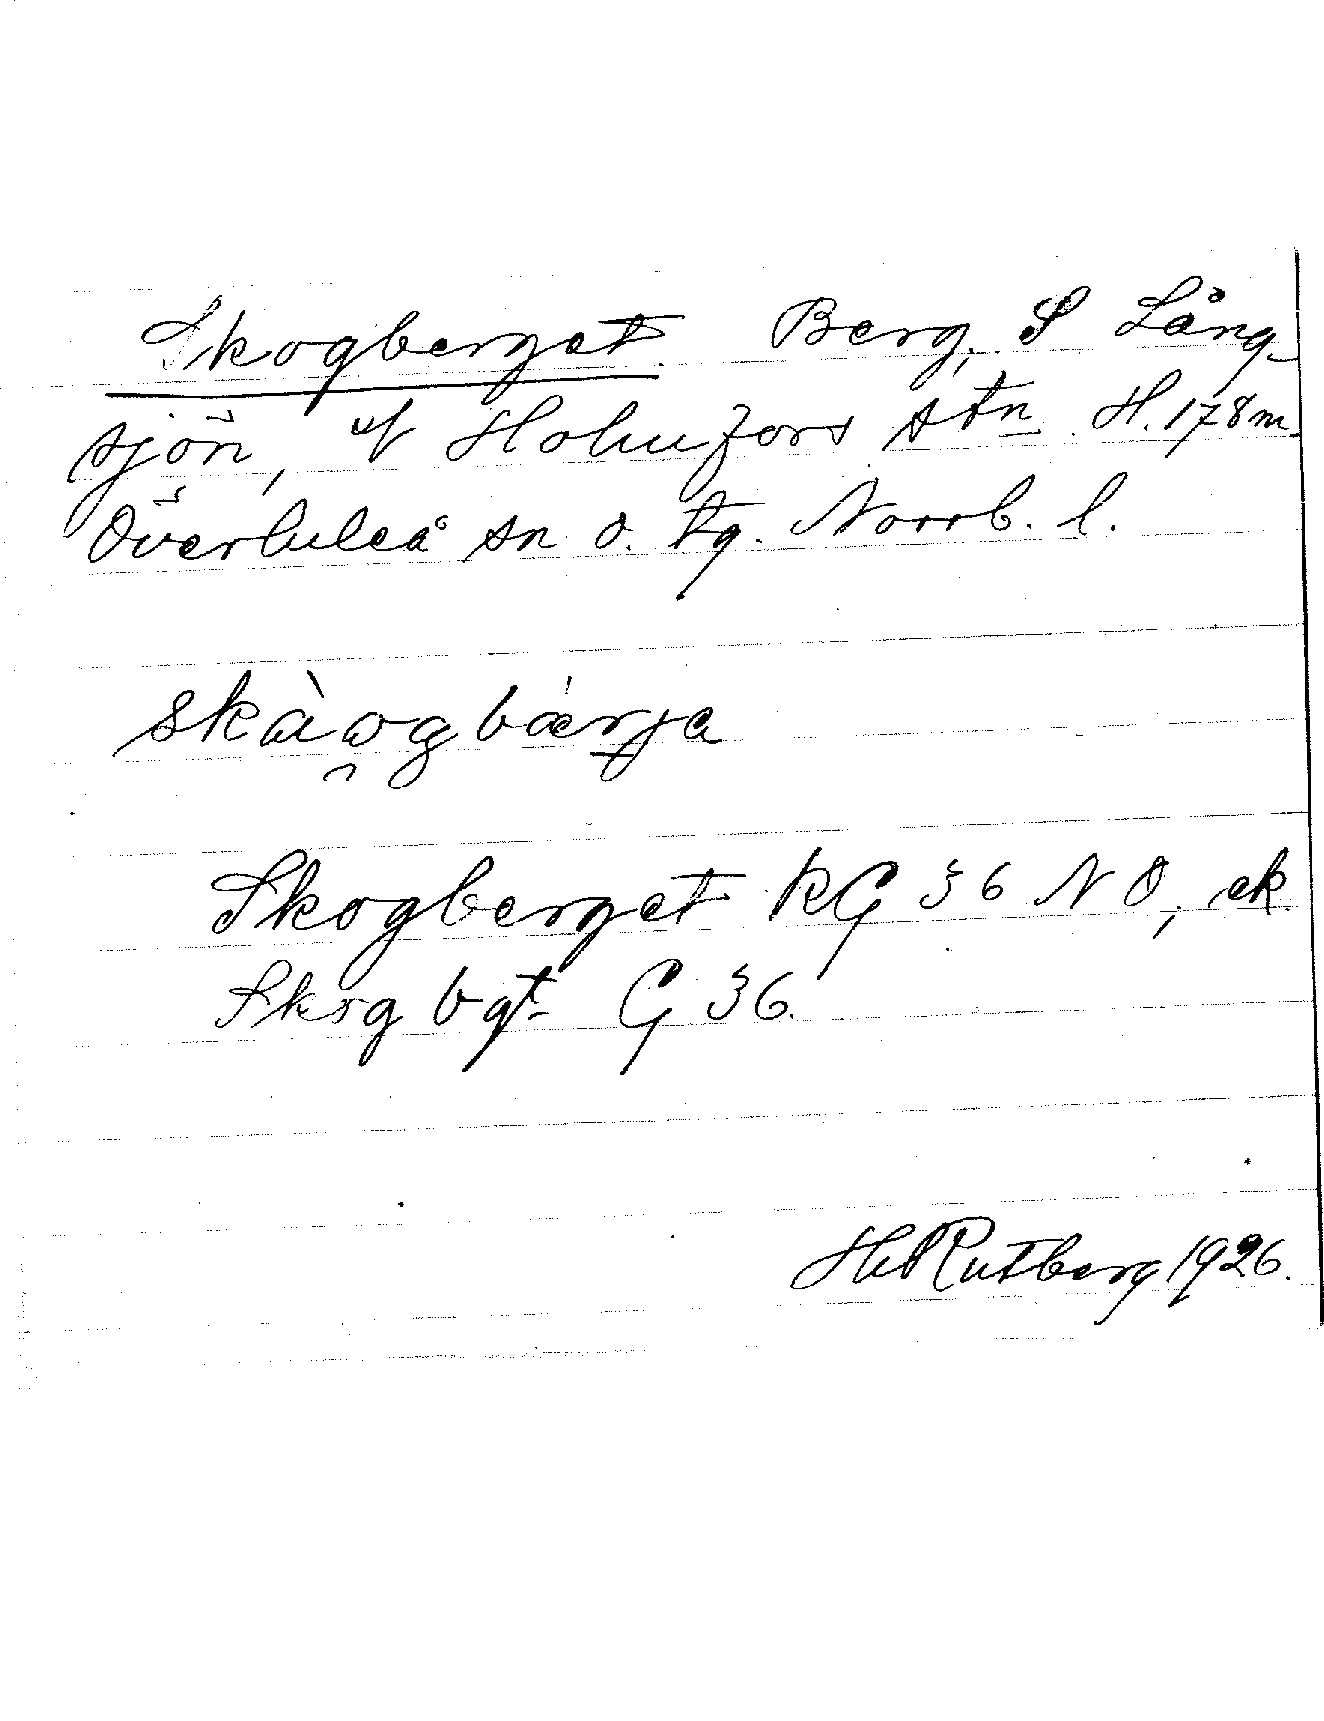 Skogberget Berg, S Lång-
sjön, V Holmfors stn. H. 178 m.
Överluleå sn o. tg. Norrb. l.
skàɷg bærja
Skogberget KG 36 NO, ek.
Skog bgt G 36.
HRutberg 1926.